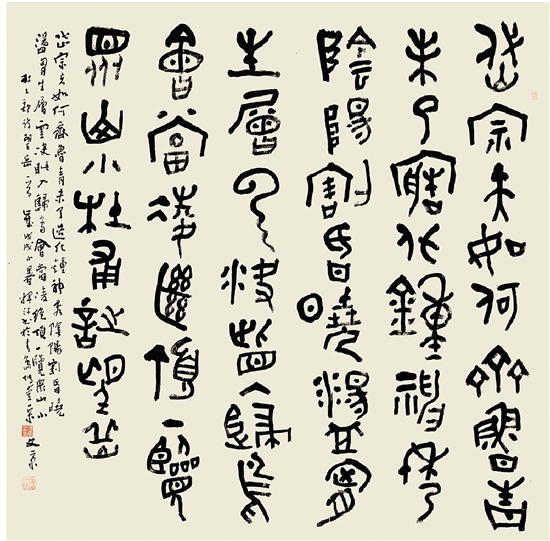 岱宗夫如何齊魯青
未了造化鍾神秀
陰陽割昏曉盪胸
生層雲決眥入歸鳥
會當凌絕頂一覽
眾山小杜甫詩望岳
岱宗夫如何齊魯青未了造化鍾神秀陰陽割昏曉
盪胸生層雲決眥入歸鳥會當凌絕頂一覽眾山小
杜工部詩望岳一首歲戊戌小暑